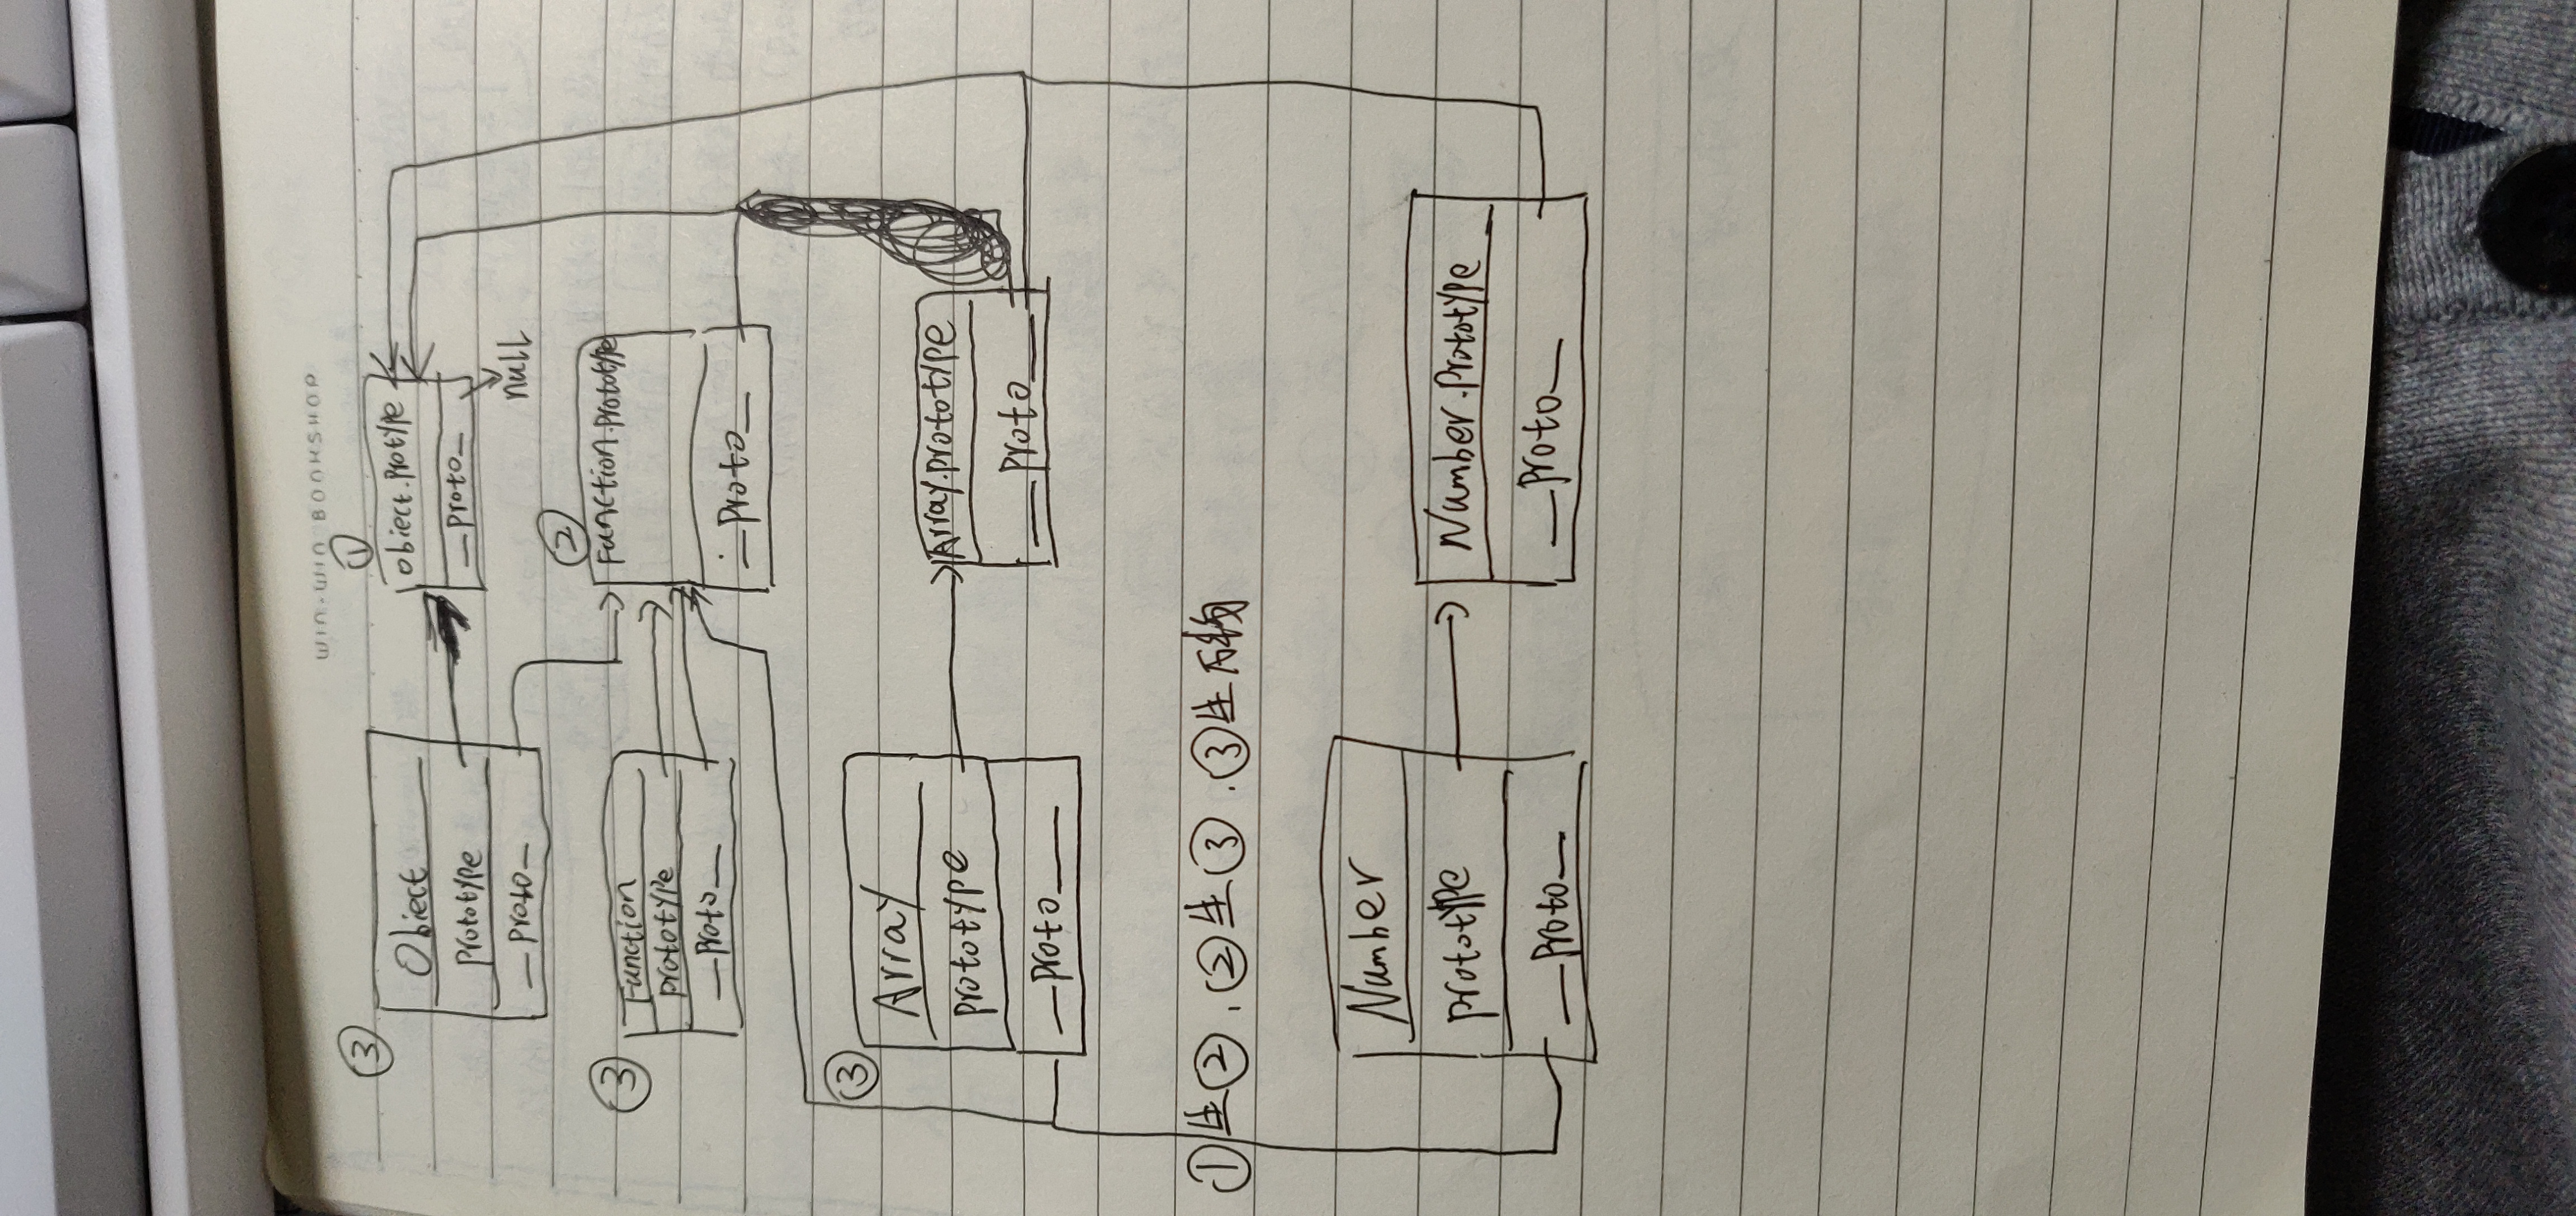 WIN-WIN BOOKSHOP
③
Object
prototype
__proto__
①
object.protype
__proto__
null
③
Function
prototype
__proto__
②
Function.prototype
__proto__
③
Array
prototype
__proto__
Array.prototype
__proto__
①生②.②生③.③生万物
Number
prototype
__proto__
Number.prototype
__proto__